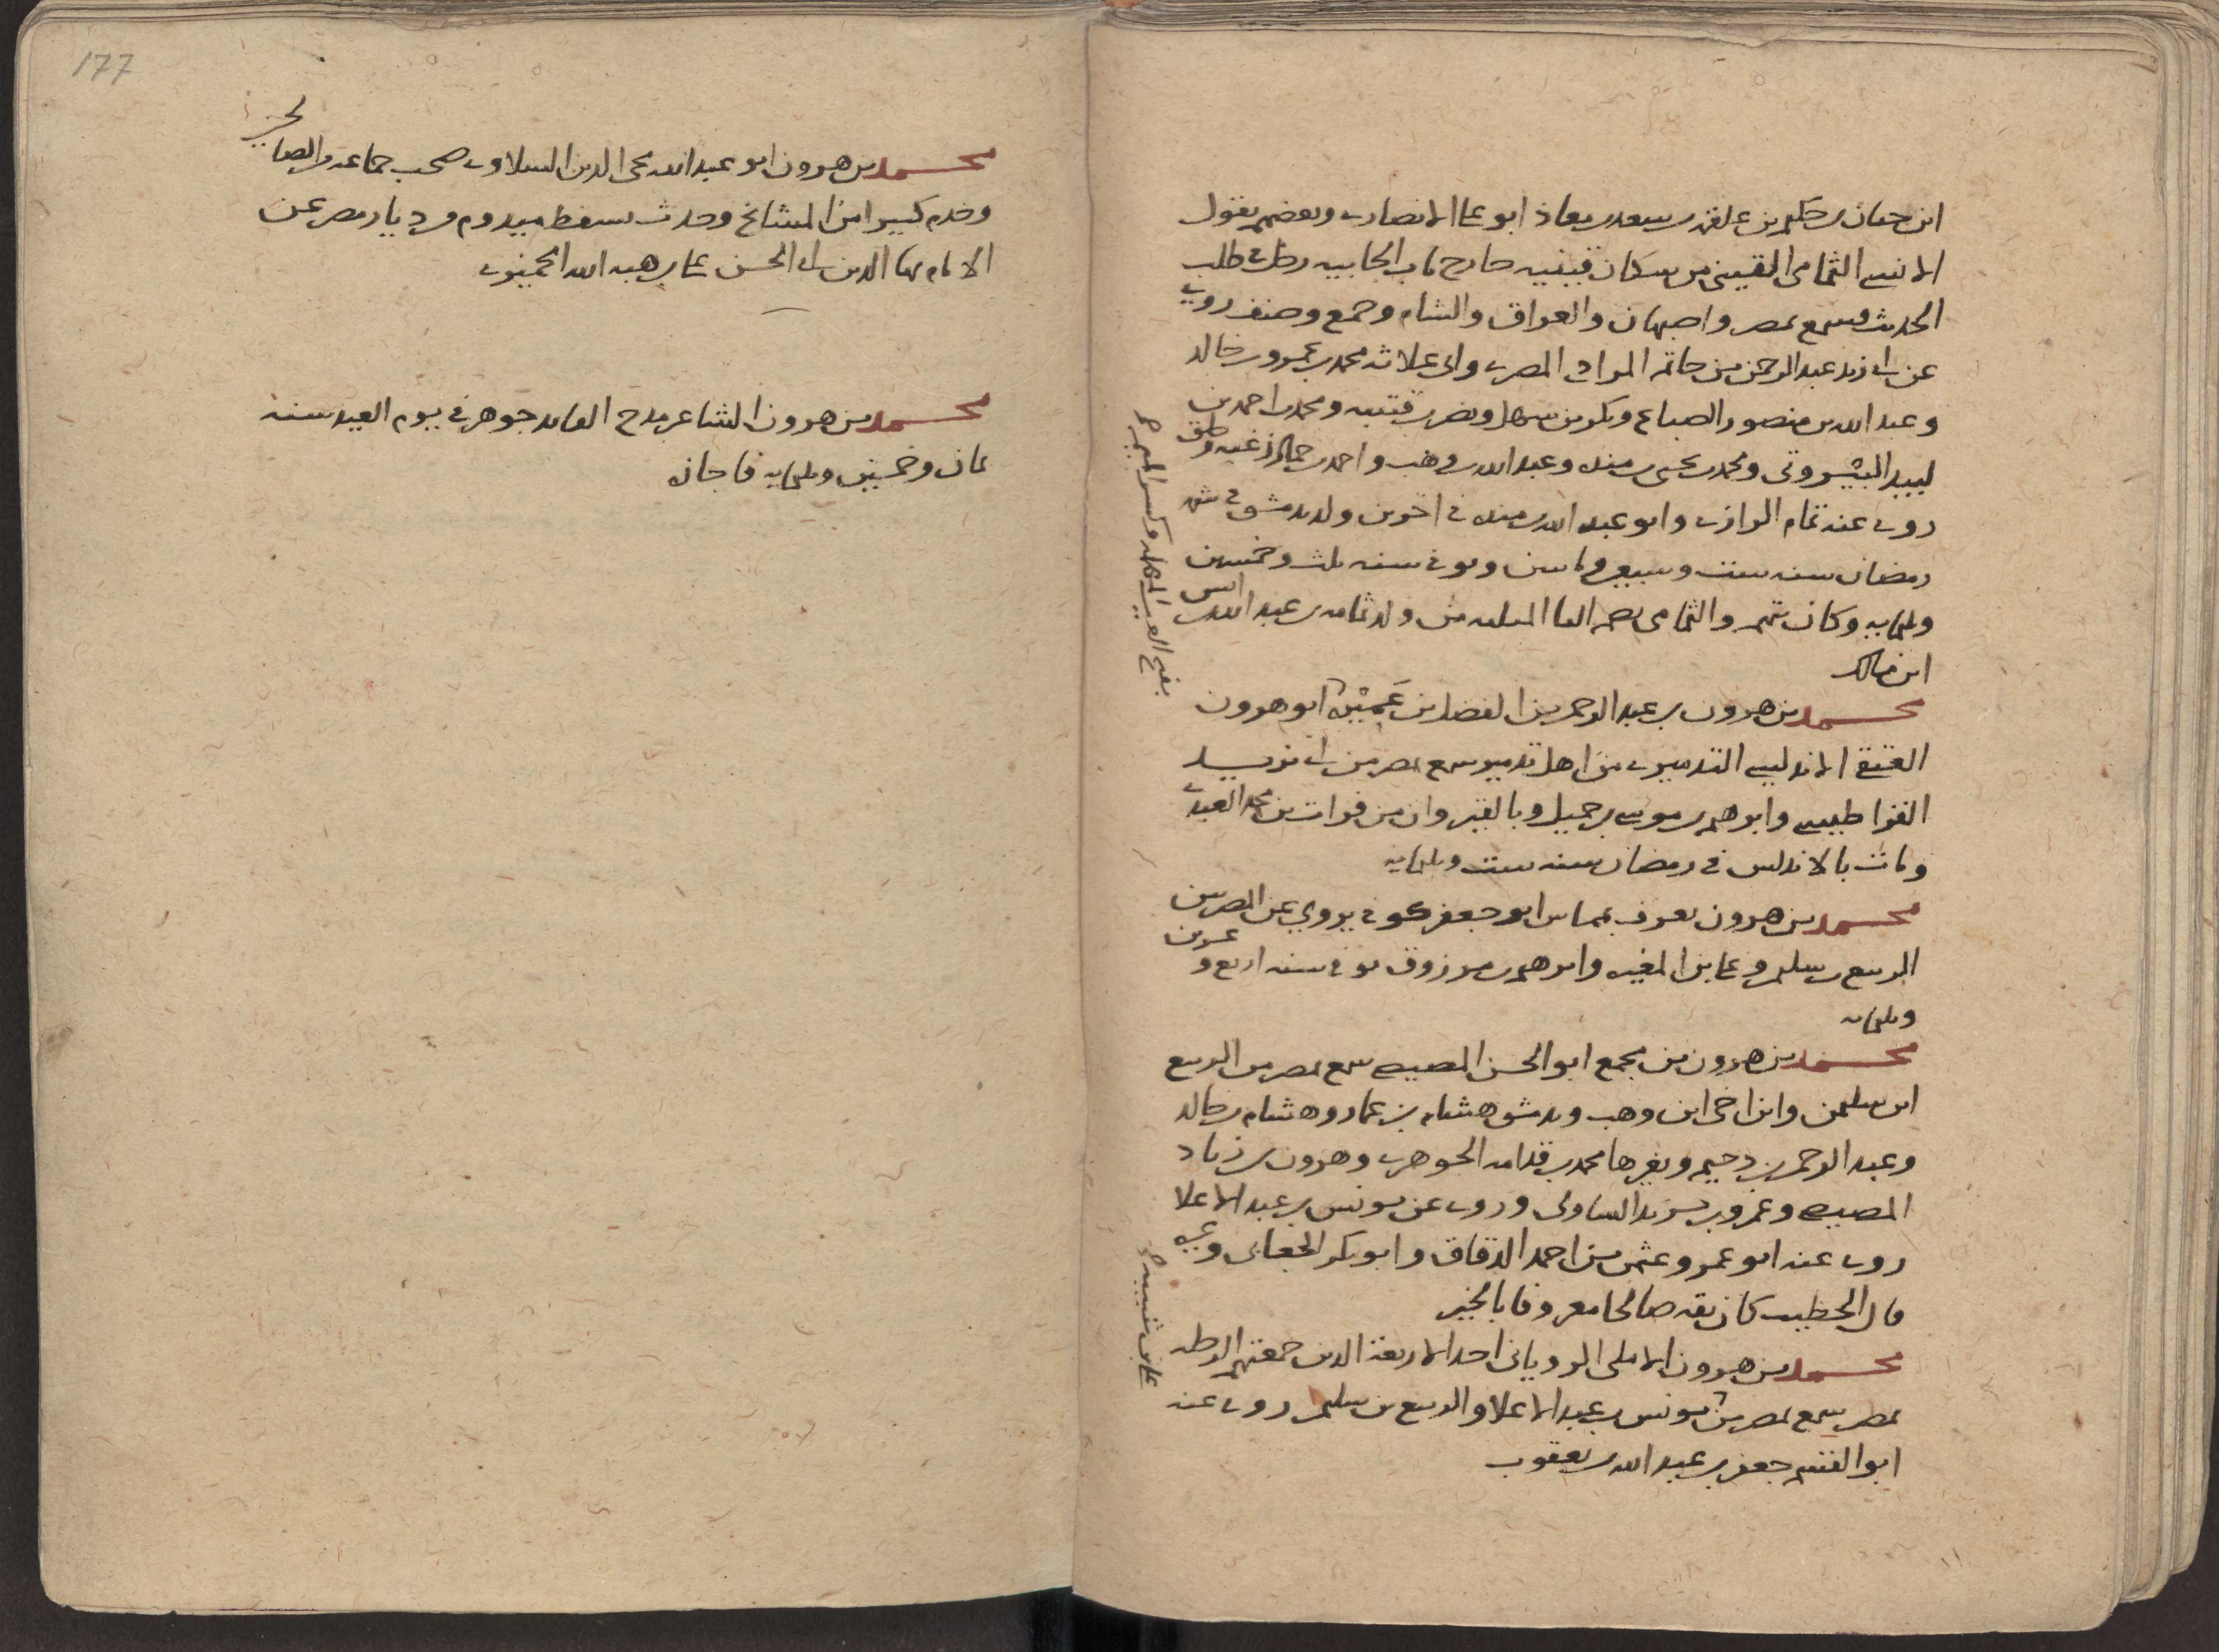 ابن حنان بن حكيم بن علقمه بن سعد بن معاذ ابو على الانصارى وبعضهم يقول
الانسى الثمامى القينى من سكان قينيه خارج باب الجابيه رحل فى طلب
الحديث وسمع بمصر واصبهان والعراق والشام وجمع وصنف روى
عن ابى زيد عبد الرحمن بن حاتم المرادى المصرى وابى علاثه محمد بن عمرو بن خالد
وعبد الله بن منصور الصباغ وبكر بن سهل ومحمد بن احمد بن
لبيد البيروتى ومحمد بن يحيى بن منده وعبد الله بن وهب واحمد بن حماد زغبه وخلق
روى عنه تمام الرازى وابو عبد الله بن منده فى اخرين ولد بدمشق فى شهر
رمضان سنه ست وستين وماتين وتوفى سنه ثلث وخمسين
وثلثمايه وكان يتهم والثمامى بضم الثا المثلثه من ولد ثمامه بن عبد الله بن انس
ابن مالك
محمد بن هرون بن عبد الرحمن بن الفضل بن عَمِيْرَه ابو هرون
العتقى الاندلسى التدميرى من اهل تدمير سمع بمصر من ابى يزيد
القراطيسى وابرهيم بن موسى بن جميل وبالقيروان من فرات بن محمد العبدى
ومات بالاندلس فى رمضان سنه ست وثلثمايه
محمد بن هرون يعرف ابو جعفر كوفى يروى عن المصريين
الربيع بن سليم وعلى بن المغيره وابرهيم بن مرزوق توفى سنه اربع وعشرين
وثلثمايه
محمد بن هرون بن مجمع ابو الحسن المصيصى سمع بمصر من الربيع
ابن سليمن وابن اخى ابن وهب وبدمشق هشام بن عمار وهشام بن خالد
وعبد الرحمن بن دحيم وبغيرها محمد بن قدامه الجوهرى وهرون بن زياد
المصيصى وعمرو بن يزيد وروى عن يونس بن عبد الاعلا
روى عنه ابو عمرو عثمن بن احمد الدقاق وابو بكر الجعابى وغيره
قال الخطيب كان ثقه صالحا معروفا بالخير
محمد بن هرون الاملى الرويانى احد الاربعة الذين جمعتهم الرحله
بمصر سمع بمصر من يونس بن عبد الاعلا والربيع بن سليم روى عنه
ابو القسم جعفر بن عبد الله بن يعقوب
بفتح العين المهمله وكسر الميم صح
على بن شيبه صح
177
محمد بن هرون ابو عبد الله محى الدين السلاوى صحب جماعه من الصالحين
وخدم كبيرا من المشايخ وحدث بسفط ميدوم من ديار مصر عن
الامام بها الدين ابى الحسن على بن هبه الله الجميزى
محمد بن هرون الشاعر مدح القايد جوهر فى يوم العيد سنه
ثمان وخمسين وثلثمايه فاجازه